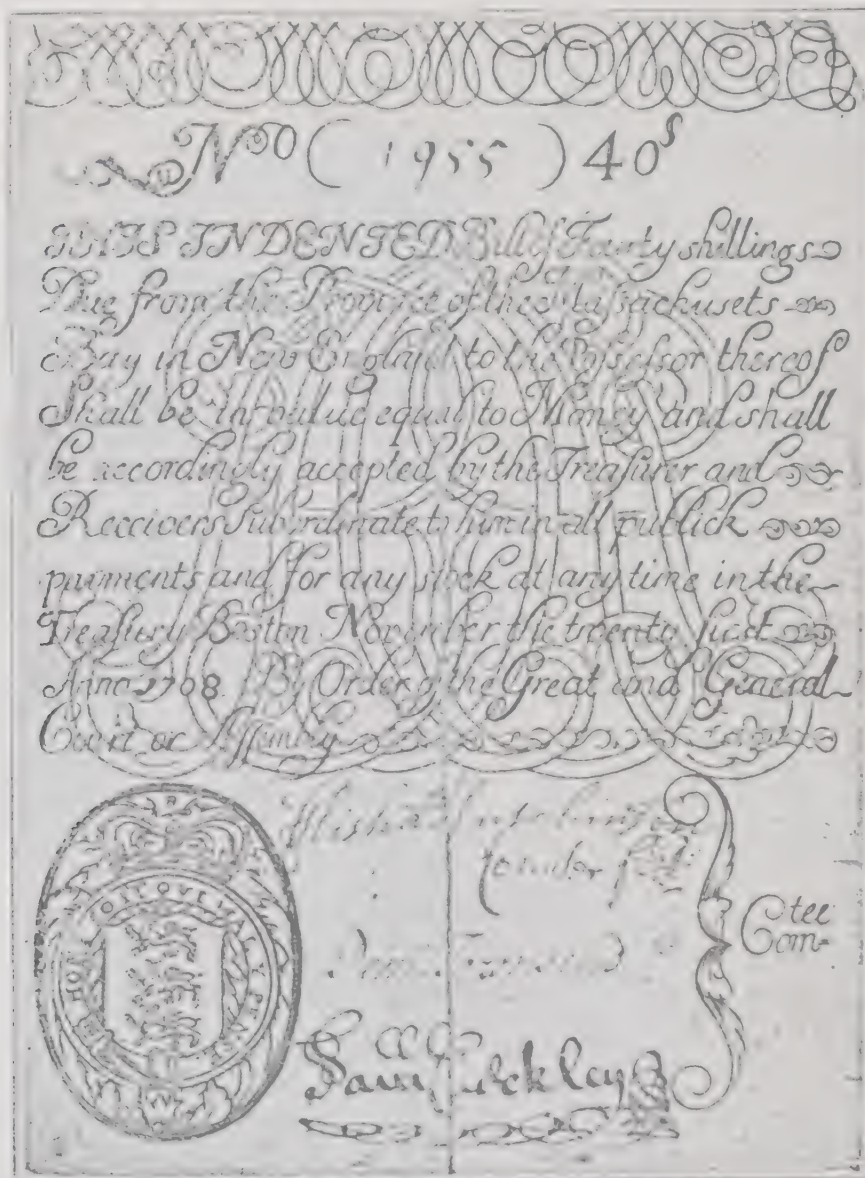 No ( 1955 ) 40s
THIS INDENTED Bill of Fourty shillings
Due from the Province of the Massachusets
Bay in New England to the Possessor thereof
Shall be in value equal to Money and shall
be accordingly accepted by the Treasurer and
Receivers Subordinate to him in all publick
paiments and for any stock at any time in the
Treasury Boston November the twenty first
Anno 1708. By Order of the Great and General
Court or Assembly
Elisha Hutchinson
HONI SOIT QUI MAL Y PENSE
Com-tee
Saml Checkley